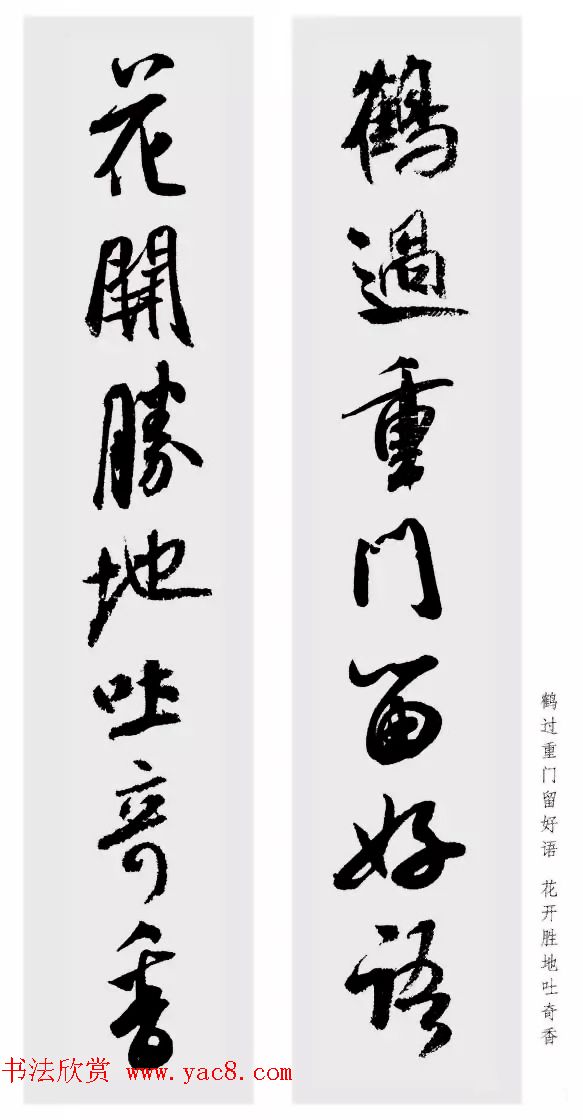 鶴過重門留好語
花開勝地吐奇香
鹤过重门留好语 花开胜地吐奇香
书法欣赏 www.yac8.com